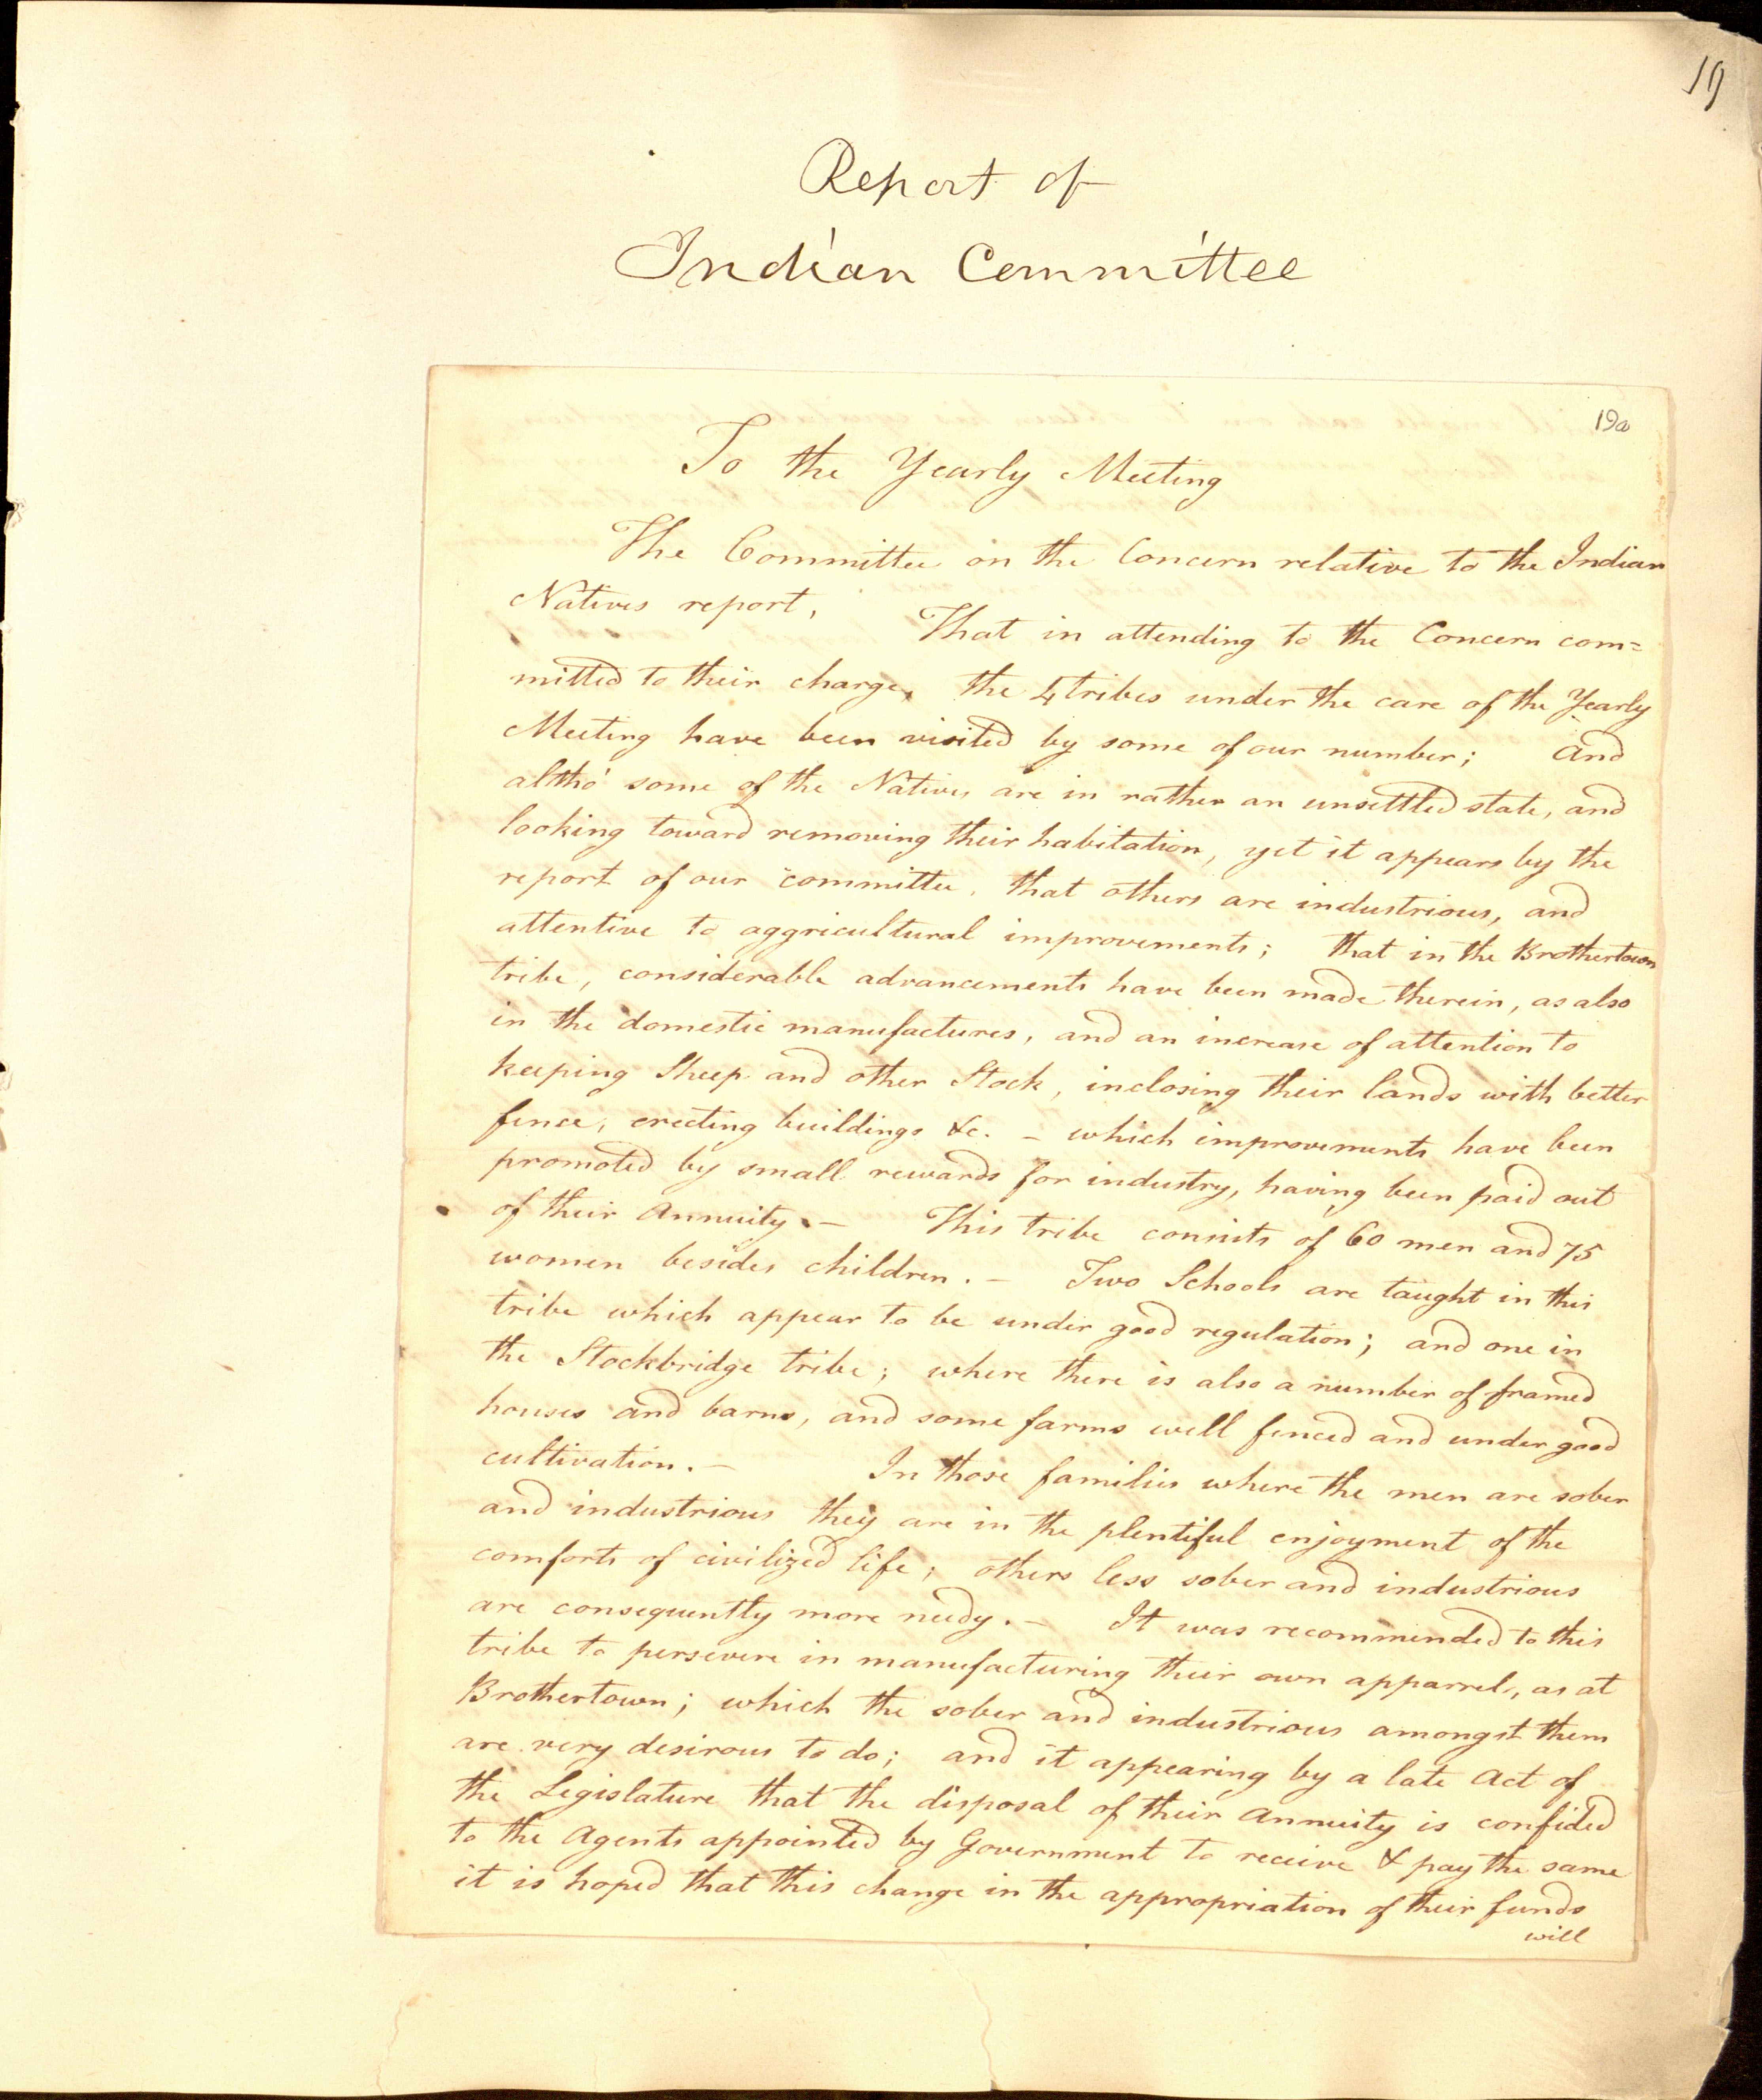 19
Report of
Indian Committee
19a
To the Yearly Meeting
The Committee on the Concern relative to the Indian
Natives report, That in attending to the Concern com=
mitted to their charge, the 4 tribes under the care of the Yearly
Meeting have been visited by some of our number; and
altho' some of the Natives are in rather an unsettled state, and
looking toward removing their habitation, yet it appears by the
report of our committee, that others are industrious, and
attentive to aggricultural improvements; that in the Brothertown
tribe, considerable advancements have been made therein, as also
in the domestic manufactures, and an increase of attention to
keeping Sheep and other Stock, inclosing their lands with better
fence, erecting buildings &c. – which improvements have been
promoted by small rewards for industry, having been paid out
of their Annuity. – This tribe consists of 60 men and 75
women besides children. – Two Schools are taught in this
tribe which appear to be under good regulation; and one in
the Stockbridge tribe; where there is also a number of framed
houses and barns, and some farms well fenced and under good
cultivation. – In those families where the men are sober
and industrious they are in the plentiful enjoyment of the
comforts of civilized life; others less sober and industrious
are consequently more needy. – It was recommended to this
tribe to persevere in manufacturing their own apparrel, as at
Brothertown; which the sober and industrious amongst them
are very desirous to do; and it appearing by a late Act of
the Legislature that the disposal of their Annuity is confided
to the Agents appointed by Government to receive & pay the same
it is hoped that this change in the appropriation of their funds
will